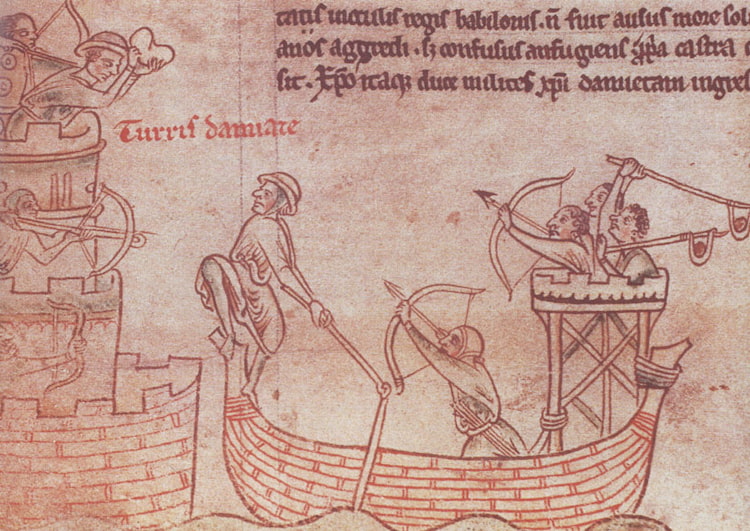 tatis incelis regis babilonis. n fuit ausus more sol
anos aggredi. sz confusus aufugiens castra
sit. Xpo itaq duce milites xpi damietam ingres
Turris damiate